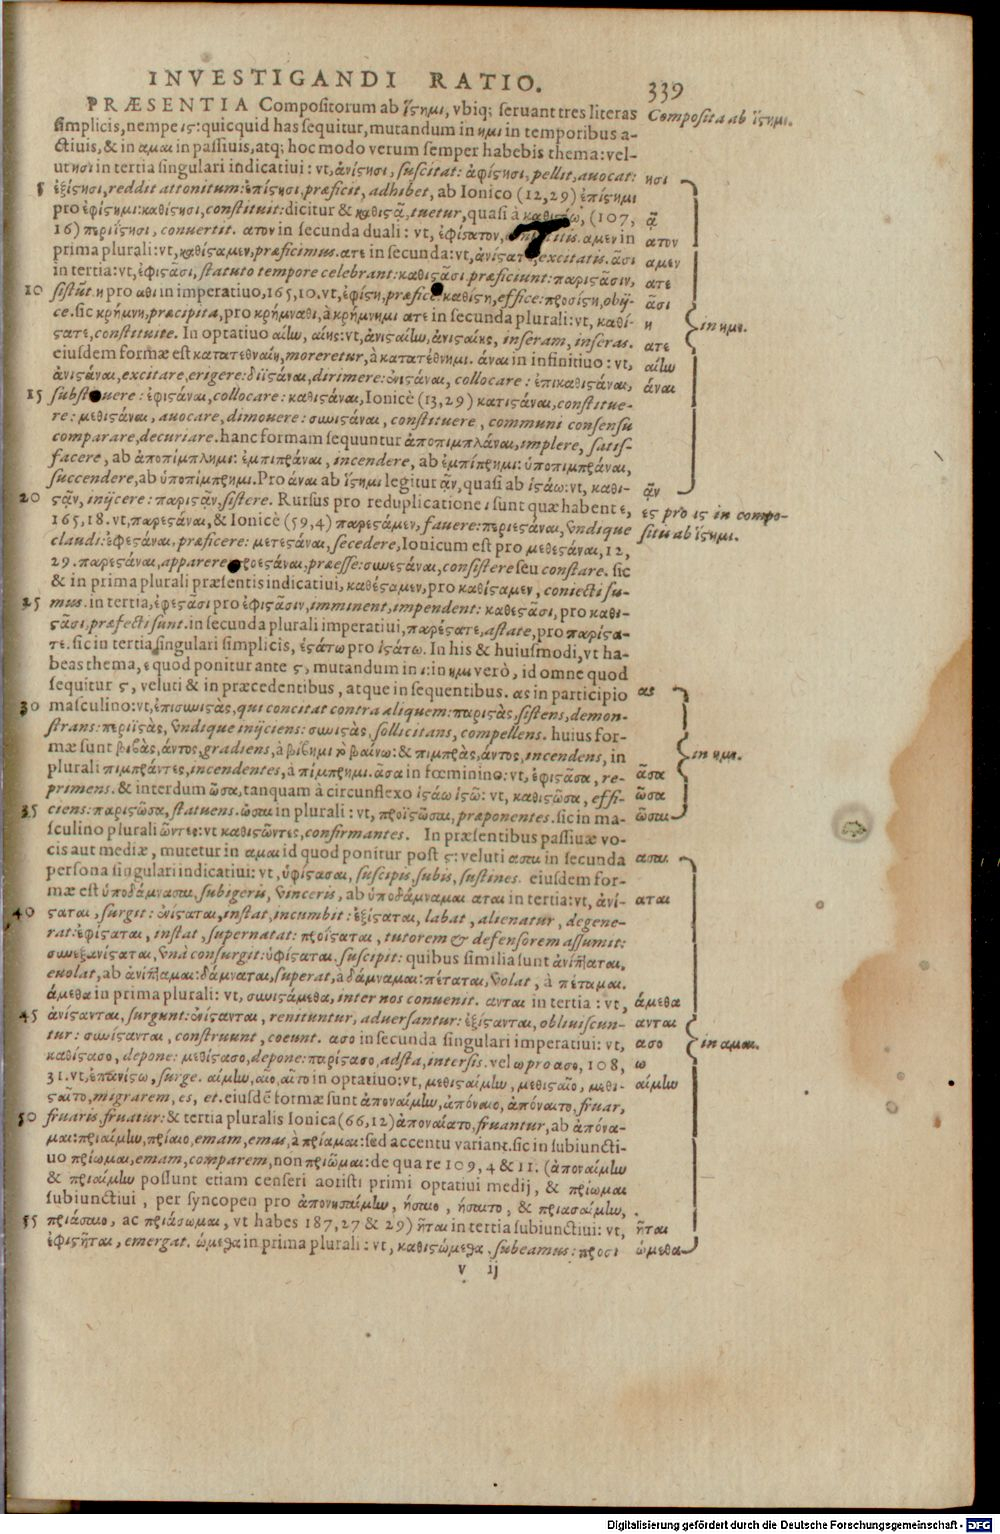 INVESTIGANDI RATIO.
339
PRÆSENTIA Compositorum ab ἵςημι, vbiq; seruant tres literas
Composita ab ἵςημι.
simplicis, nempe ις: quicquid has sequitur, mutandum in ημι in temporibus a-
ctiuis, & in αμαι in passiuis, atq; hoc modo verum semper habebis thema: vel-
ut ησι in tertia singulari indicatiui: vt, ἀνίςησι, suscitat: ἀφίςησι, pellit, auocat:
ησι
5 ἐξίςησι, reddit attonitum: ἐπίςησι, præficit, adhibet, ab Ionico (12, 29) ἐπίςημι
pro ἐφίςημι: καθίςησι, constituit: dicitur & καθιςᾷ, tuetur, quasi à καθιςάω, (107,
ᾷ
16) περιΐςησι, conuertit. ατον in secunda duali: vt, ἐφίςατον, αμεν in
ατον
prima plurali: vt, καθίςαμεν, præficimus. ατε in secunda: vt, ἀνίςατε, excitatis. ᾶσι
αμεν
in tertia: vt, ἐφιςᾶσι, statuto tempore celebrant: καθιςᾶσι præficiunt: παριςᾶσιν,
ατε
10 sistūt. η pro αθι in imperatiuo, 165, 10. vt, ἐφίςη, præfice: καθίςη, effice: προσίςη, obij-
ᾶσι
ce. sic κρήμνη, præcipita, pro κρήμναθι, à κρήμνημι ατε in secunda plurali: vt, καθί-
η
in ημι.
ςατε, constituite. In optatiuo αίlω, αίης: vt, ἀνιςαίlω, ἀνιςαίης, inseram, inseras.
ατε
eiusdem formæ est κατατεθναίη, moreretur, à κατατέθνημι. άναι in infinitiuo: vt,
αίlω
ἀνιςάναι, excitare, erigere: διϊςάναι, dirimere: ἐνιςάναι, collocare: ἐπικαθιςάναι,
άναι
15 substituere: ἐφιςάναι, collocare: καθιςάναι, Ionicè (13, 29) κατιςάναι, constitue-
re: μεθιςάναι, auocare, dimouere: συνιςάναι, constituere, communi consensu
comparare, decuriare. hanc formam sequuntur ἀποπιμπλάναι, implere, satis-
facere, ab ἀποπίμπλημι: ἐμπιπράναι, incendere, ab ἐμπίπρημι: ὑποπιμπράναι,
succendere, ab ὑποπίμπρημι. Pro άναι ab ἵςημι legitur ᾷν, quasi ab ἱςάω: vt, καθι-
ᾷν
20 ςᾷν, inijcere: παριςᾷν, sistere. Rursus pro reduplicatione ι sunt quæ habent ε,
ες pro ις in compo-
165, 18. vt, παρεςάναι, & Ionicè (59, 4) παρεςάμεν, fauere: περιεςάναι, vndique
situ ab ἵςημι.
claudi: ἐφεςάναι, præficere: μετεςάναι, secedere, Ionicum est pro μεθεςάναι, 12,
29. παρεςάναι, apparere: προεςάναι, præesse: συνεςάναι, consistere seu constare. sic
& in prima plurali præsentis indicatiui, καθέςαμεν, pro καθίςαμεν, coniecti su-
25 mus. in tertia, ἐφεςᾶσι pro ἐφιςᾶσιν, imminent, impendent: καθεςᾶσι, pro καθι-
ςᾶσι, præfecti sunt. in secunda plurali imperatiui, παρέςατε, astate, pro παρίςα-
τε. sic in tertia singulari simplicis, ἑςάτω pro ἱςάτω. In his & huiusmodi, vt ha-
beas thema, ε quod ponitur ante ς, mutandum in ι: in ημι verò, id omne quod
sequitur ς, veluti & in præcedentibus, atque in sequentibus. ας in participio
ας
30 masculino: vt, ἐπισυνιςὰς, qui concitat contra aliquem: παριςὰς, sistens, demon-
strans: περιϊςὰς, vndique inijciens: συνιςὰς, sollicitans, compellens. huius for-
mæ sunt βιβὰς, άντος, gradiens, à βίβημι τὸ βαίνω: & πιμπρὰς, άντος, incendens, in
in ημι.
plurali πιμπράντες, incendentes, à πίμπρημι. ᾶσα in fœminino: vt, ἐφιςᾶσα, re-
ᾶσα
primens. & interdum ῶσα, tanquam à circunflexo ἱςάω ἱςῶ: vt, καθιςῶσα, effi-
ῶσα
35 ciens: παριςῶσα, statuens. ῶσαι in plurali: vt, προϊςῶσαι, præponentes. sic in ma-
ῶσαι
sculino plurali ῶντες: vt καθιςῶντες, confirmantes. In præsentibus passiuæ vo-
cis aut mediæ, mutetur in αμαι id quod ponitur post ς: veluti ασαι in secunda
ασαι.
persona singulari indicatiui: vt, ὑφίςασαι, suscipis, subis, sustines. eiusdem for-
mæ est ὑποδάμνασαι, subigeris, vinceris, ab ὑποδάμναμαι αται in tertia: vt, ἀνί-
αται
40 ςαται, surgit: ἐνίςαται, instat, incumbit: ἐξίςαται, labat, alienatur, degene-
rat: ἐφίςαται, instat, supernatat: προΐςαται, tutorem & defensorem assumit:
συνεξανίςαται, vnà consurgit: ὑφίςαται, suscipit: quibus similia sunt ἀνίπταται,
euolat, ab ἀνίπταμαι: δάμναται, superat, à δάμναμαι: πέταται, volat, à πέταμαι.
άμεθα in prima plurali: vt, συνιςάμεθα, inter nos conuenit. ανται in tertia: vt,
άμεθα
45 ἀνίςανται, surgunt: ἐνίςανται, renituntur, aduersantur: ἐξίςανται, obliuiscun-
ανται
tur: συνίςανται, construunt, coeunt. ασο in secunda singulari imperatiui: vt,
ασο
in αμαι.
καθίςασο, depone: μεθίςασο, depone: παρίςασο, adsta, intersis. vel ω pro ασο, 108,
ω
31. vt, ἐπανίςω, surge. αίμlω, αιο, αῖτο in optatiuo: vt, μεθιςαίμlω, μεθιςαῖο, μεθι-
αίμlω
ςαῖτο, migrarem, es, et. eiusdē formæ sunt ἀποναίμlω, ἀπόναιο, ἀπόναιτο, fruar,
50 fruaris, fruatur: & tertia pluralis Ionica (66, 12) ἀποναίατο, fruantur, ab ἀπόνα-
μαι: πριαίμlω, πρίαιο, emam, emas, à πρίαμαι: sed accentu variant. sic in subiuncti-
uo πρίωμαι, emam, comparem, non πριῶμαι: de qua re 109, 4 & 11. (ἀποναίμlω
& πριαίμlω possunt etiam censeri aoristi primi optatiui medij, & πρίωμαι
subiunctiui, per syncopen pro ἀπονησαίμlω, ήσαιο, ήσαιτο, & πριασαίμlω,
55 πριάσαιο, ac πριάσωμαι, vt habes 187, 27 & 29) ῆται in tertia subiunctiui: vt,
ῆται
ἐφιςῆται, emergat. ώμεθα in prima plurali: vt, καθιςώμεθα, subeamus: προσι
ώμεθα
v ij
Digitalisierung gefördert durch die Deutsche Forschungsgemeinschaft - DFG